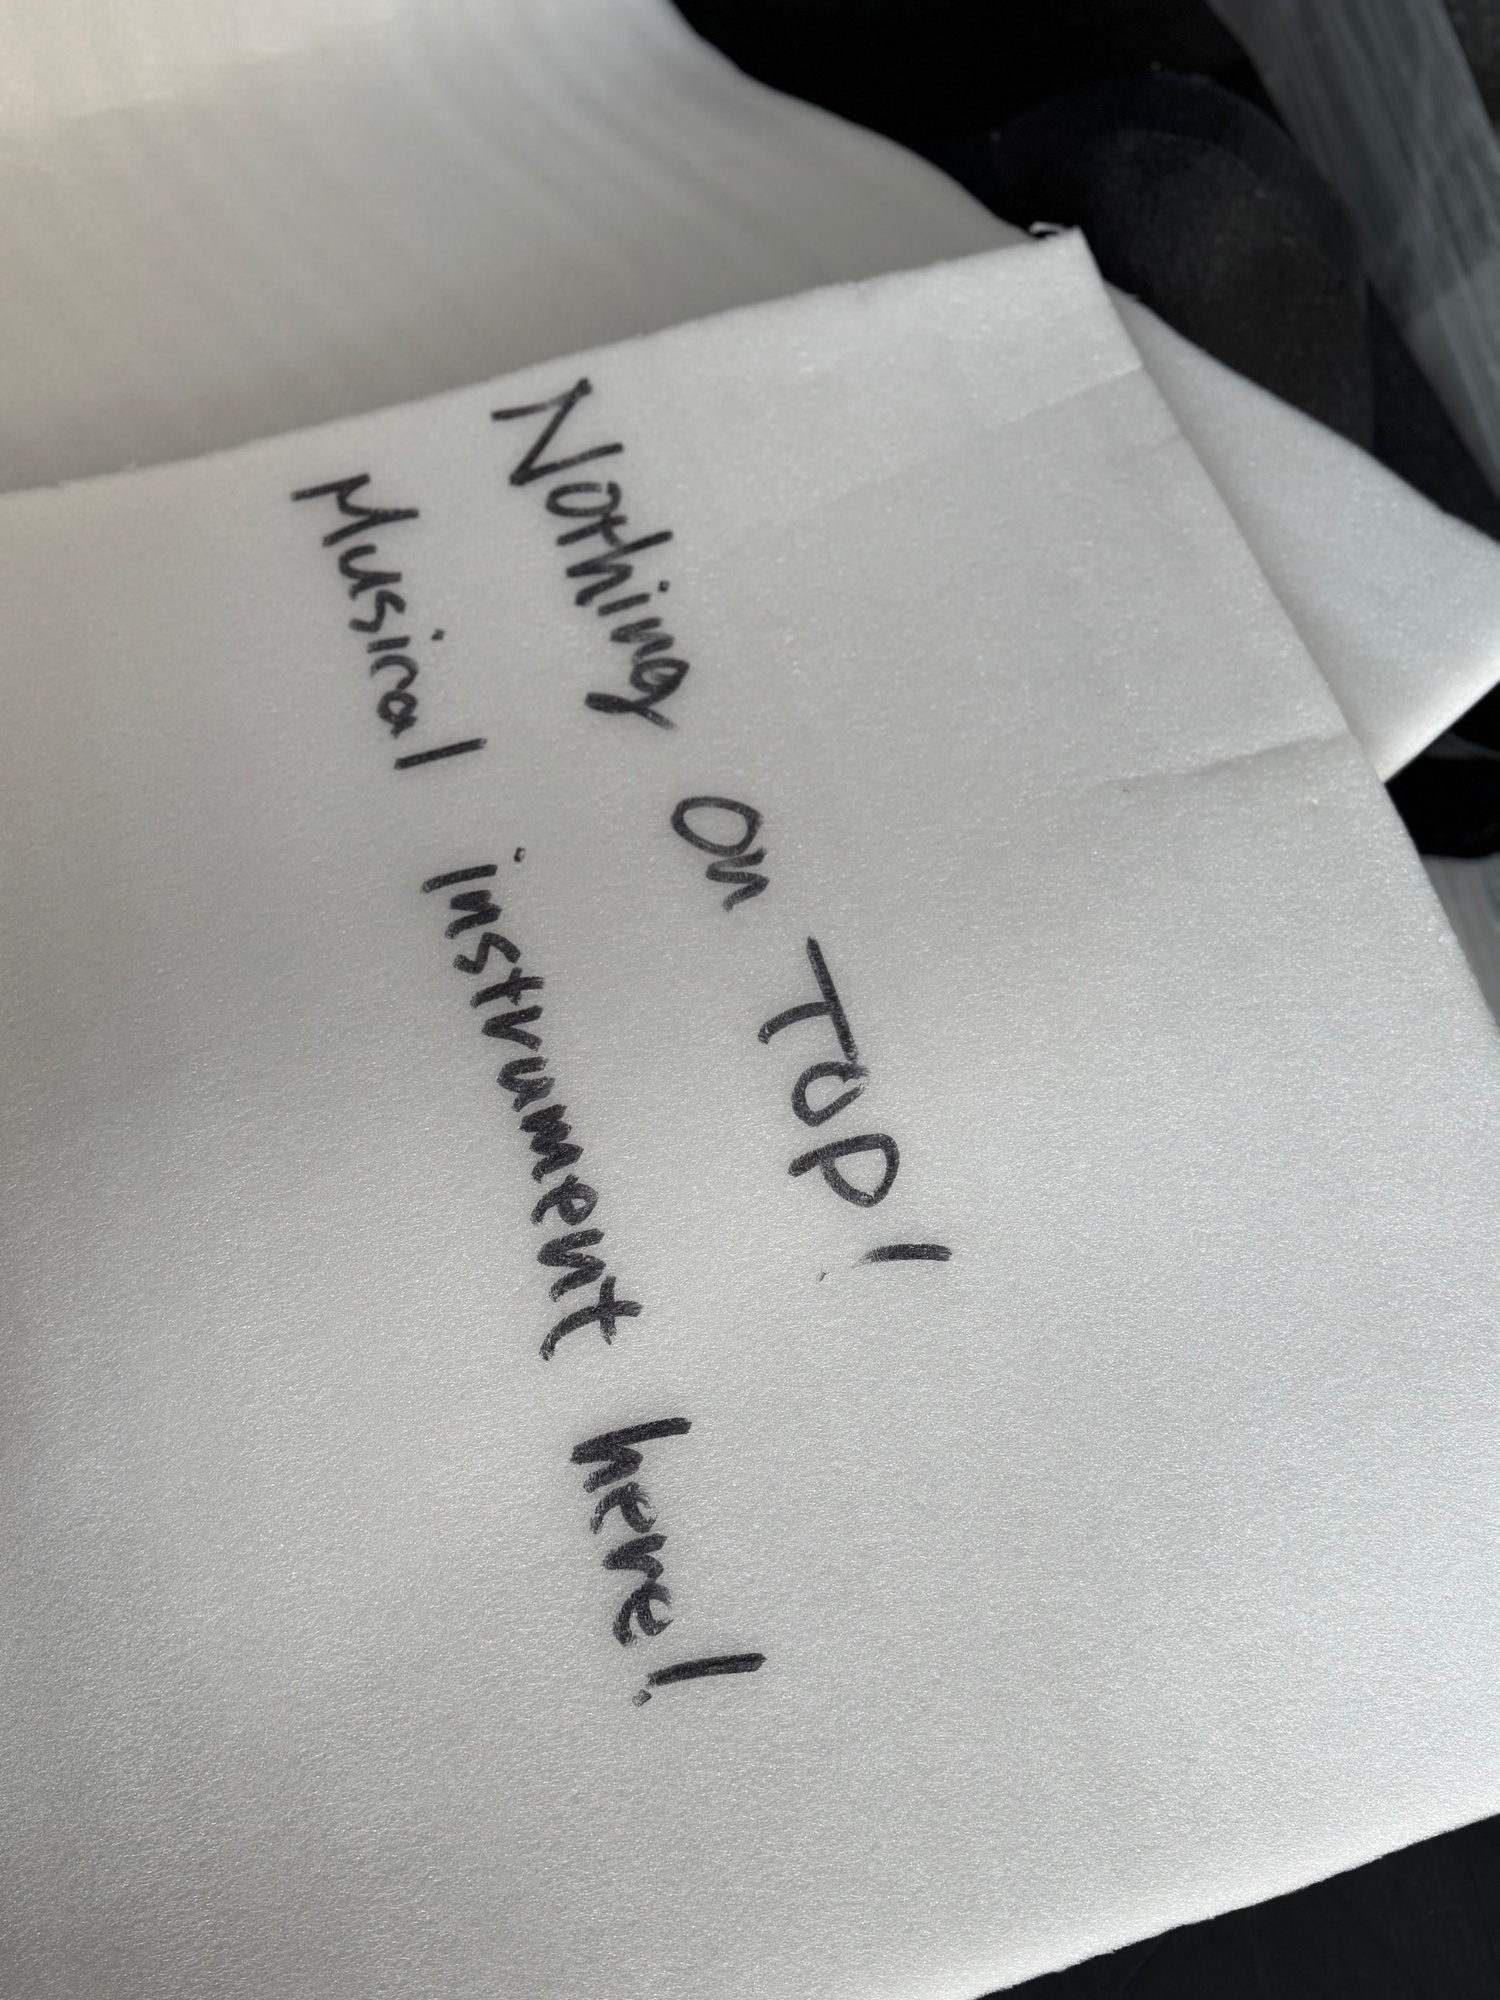 Nothing on TOP!
Musical instrument here!